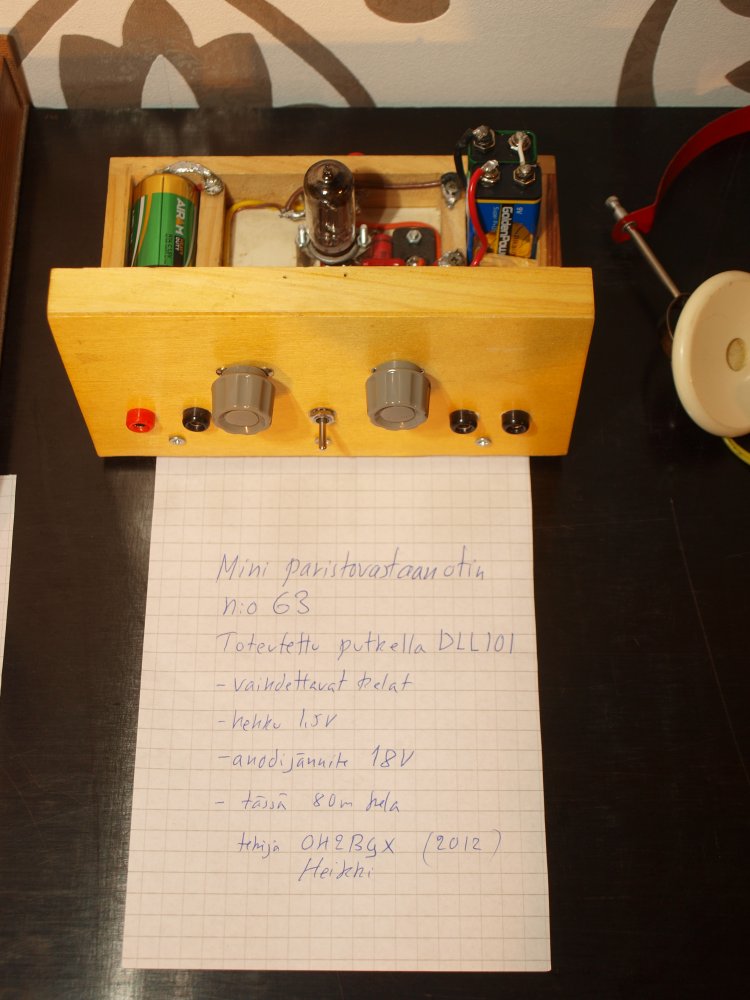 AIR-M
9V
GoldenPow
Mini paristovastaanotin
n:o 63
Toteutettu putkella DLL101
- vaihdettavat kelat
- hehku 1,5V
- anodijännite 18V
- tässä 80m kela
tekijä OH2BGX (2012)
Heikki